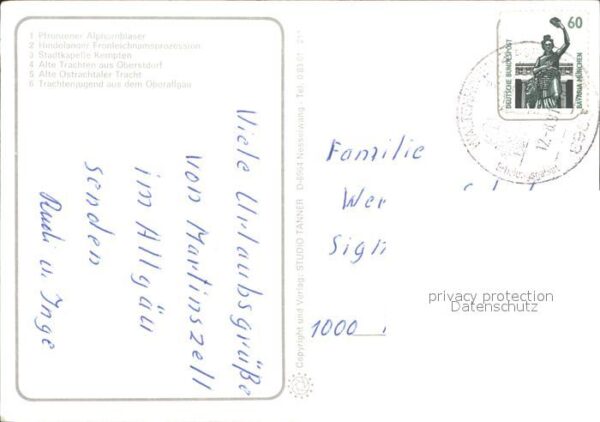 1 Pfrontener Alphornbläser
2 Hindelanger Fronleichnamsprozession
3 Stadtkapelle Kempten
4 Alte Trachten aus Oberstdorf
5 Alte Ostrachtaler Tracht
6 Trachtenjugend aus dem Oberallgäu
Viele Urlaubsgrüße
von Martinszell
im Allgäu
senden
Rudi u. Inge
Copyright und Verlag: STUDIO TANNER D-8964 Nesselwang · Tel. 0 83 61
60
DEUTSCHE BUNDESPOST
BAVARIA MÜNCHEN
Familie
Wer
Sign
1000
privacy protection
Datenschutz